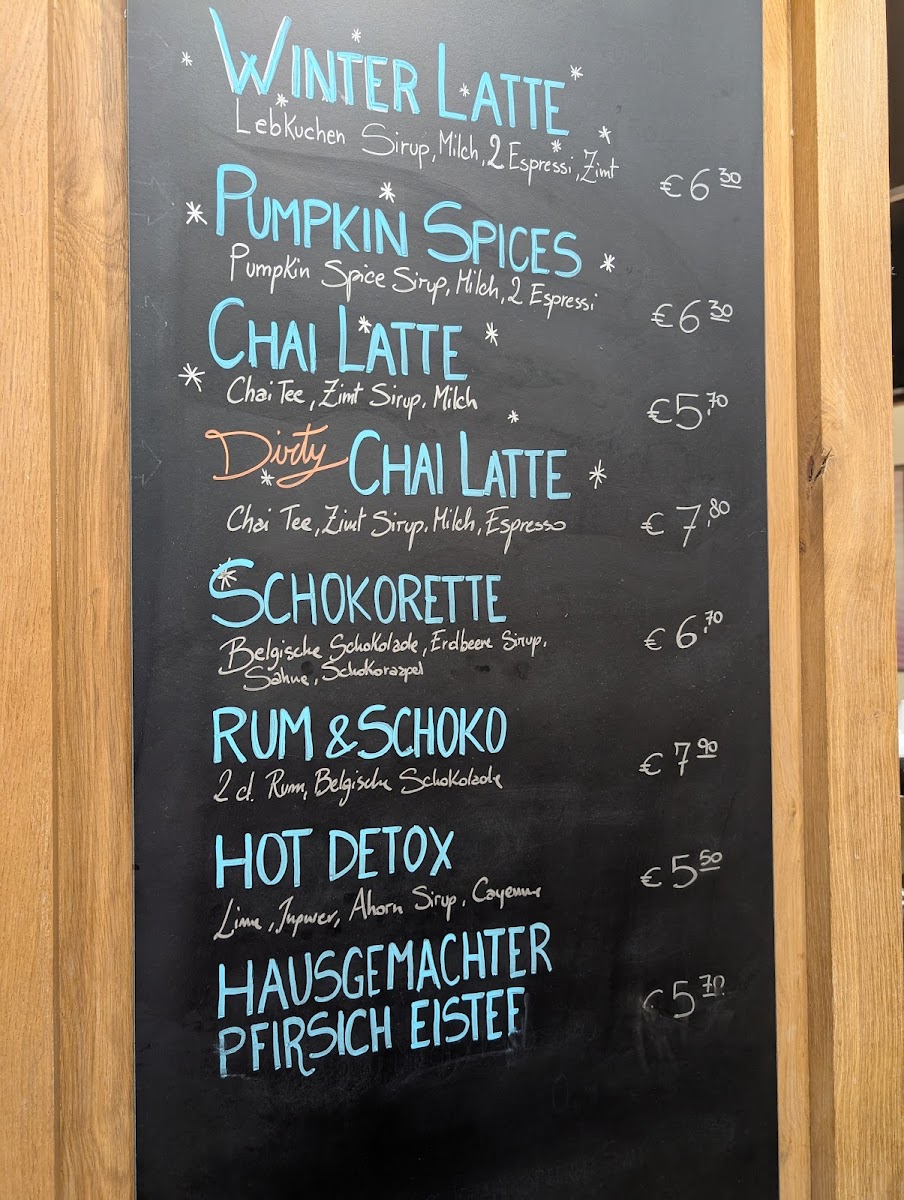 WINTER LATTE
Lebkuchen Sirup, Milch, 2 Espressi, Zimt
€6 30
PUMPKIN SPICES
Pumpkin Spice Sirup, Milch, 2 Espressi
€6 30
CHAI LATTE
Chai Tee, Zimt Sirup, Milch
€5,70
Dirty CHAI LATTE
Chai Tee, Zimt Sirup, Milch, Espresso
€7,80
SCHOKORETTE
Belgische Schokolade, Erdbeere Sirup,
Sahne, Schokoraspel
€6,70
RUM & SCHOKO
2 cl. Rum, Belgische Schokolade
€7 90
HOT DETOX
Lime, Ingwer, Ahorn Sirup, Cayenne
€5 50
HAUSGEMACHTER
PFIRSICH EISTEE
€5 70